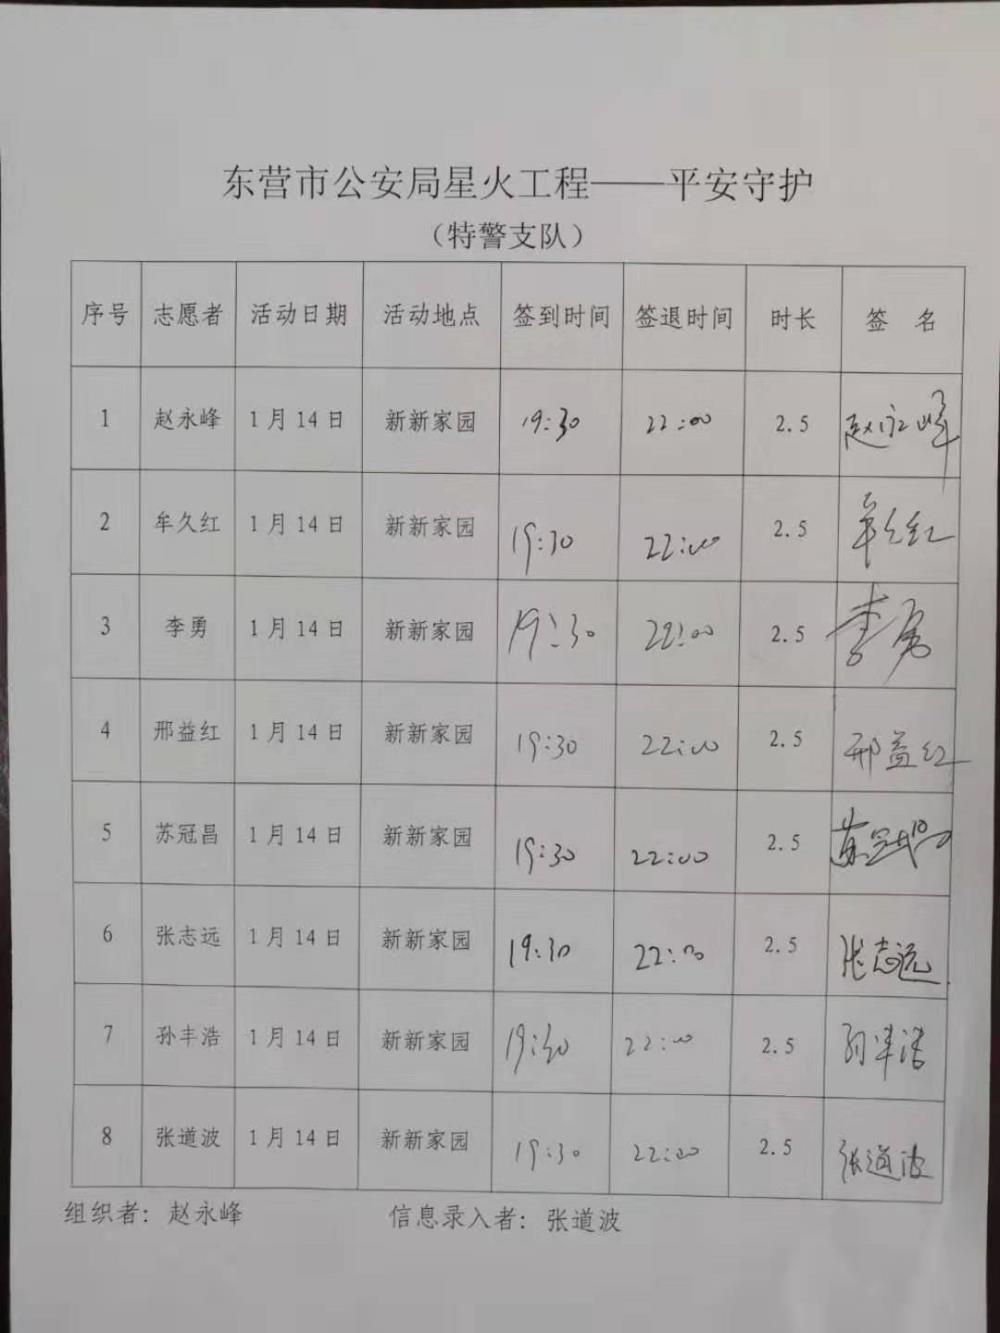 东营市公安局星火工程——平安守护
（特警支队）
序号 志愿者 活动日期 活动地点 签到时间 签退时间 时长 签 名
1 赵永峰 1月14日 新新家园 19:30 22:00 2.5 赵永峰
2 牟久红 1月14日 新新家园 19:30 22:00 2.5 牟久红
3 李勇 1月14日 新新家园 19:30 22:00 2.5 李勇
4 邢益红 1月14日 新新家园 19:30 22:00 2.5 邢益红
5 苏冠昌 1月14日 新新家园 19:30 22:00 2.5 苏冠昌
6 张志远 1月14日 新新家园 19:30 22:00 2.5 张志远
7 孙丰浩 1月14日 新新家园 19:30 22:00 2.5 孙丰浩
8 张道波 1月14日 新新家园 19:30 22:00 2.5 张道波
组织者：赵永峰 信息录入者：张道波